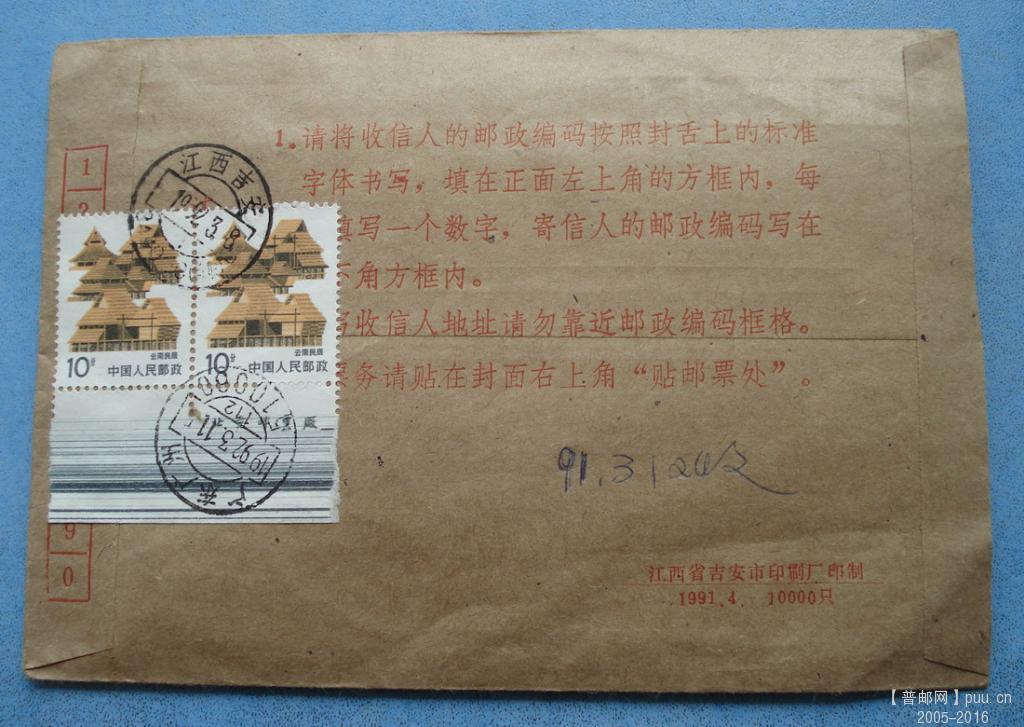 1。请将收信人的邮政编码按照封舌上的标准
字体书写，填在正面左上角的方框内，每
填写一个数字，寄信人的邮政编码写在
下角方框内。
写收信人地址请勿靠近邮政编码框格。
票务请贴在封面右上角“贴邮票处”。
1
9
0
江西吉安
1992.3.8
10分
云南民居
中国人民邮政
10分
云南民居
中国人民邮政
510080
1992.3.11
广东广州
91.3
江西省吉安市印刷厂印制
1991.4. 10000只
【普邮网】puu.cn
2005-2016